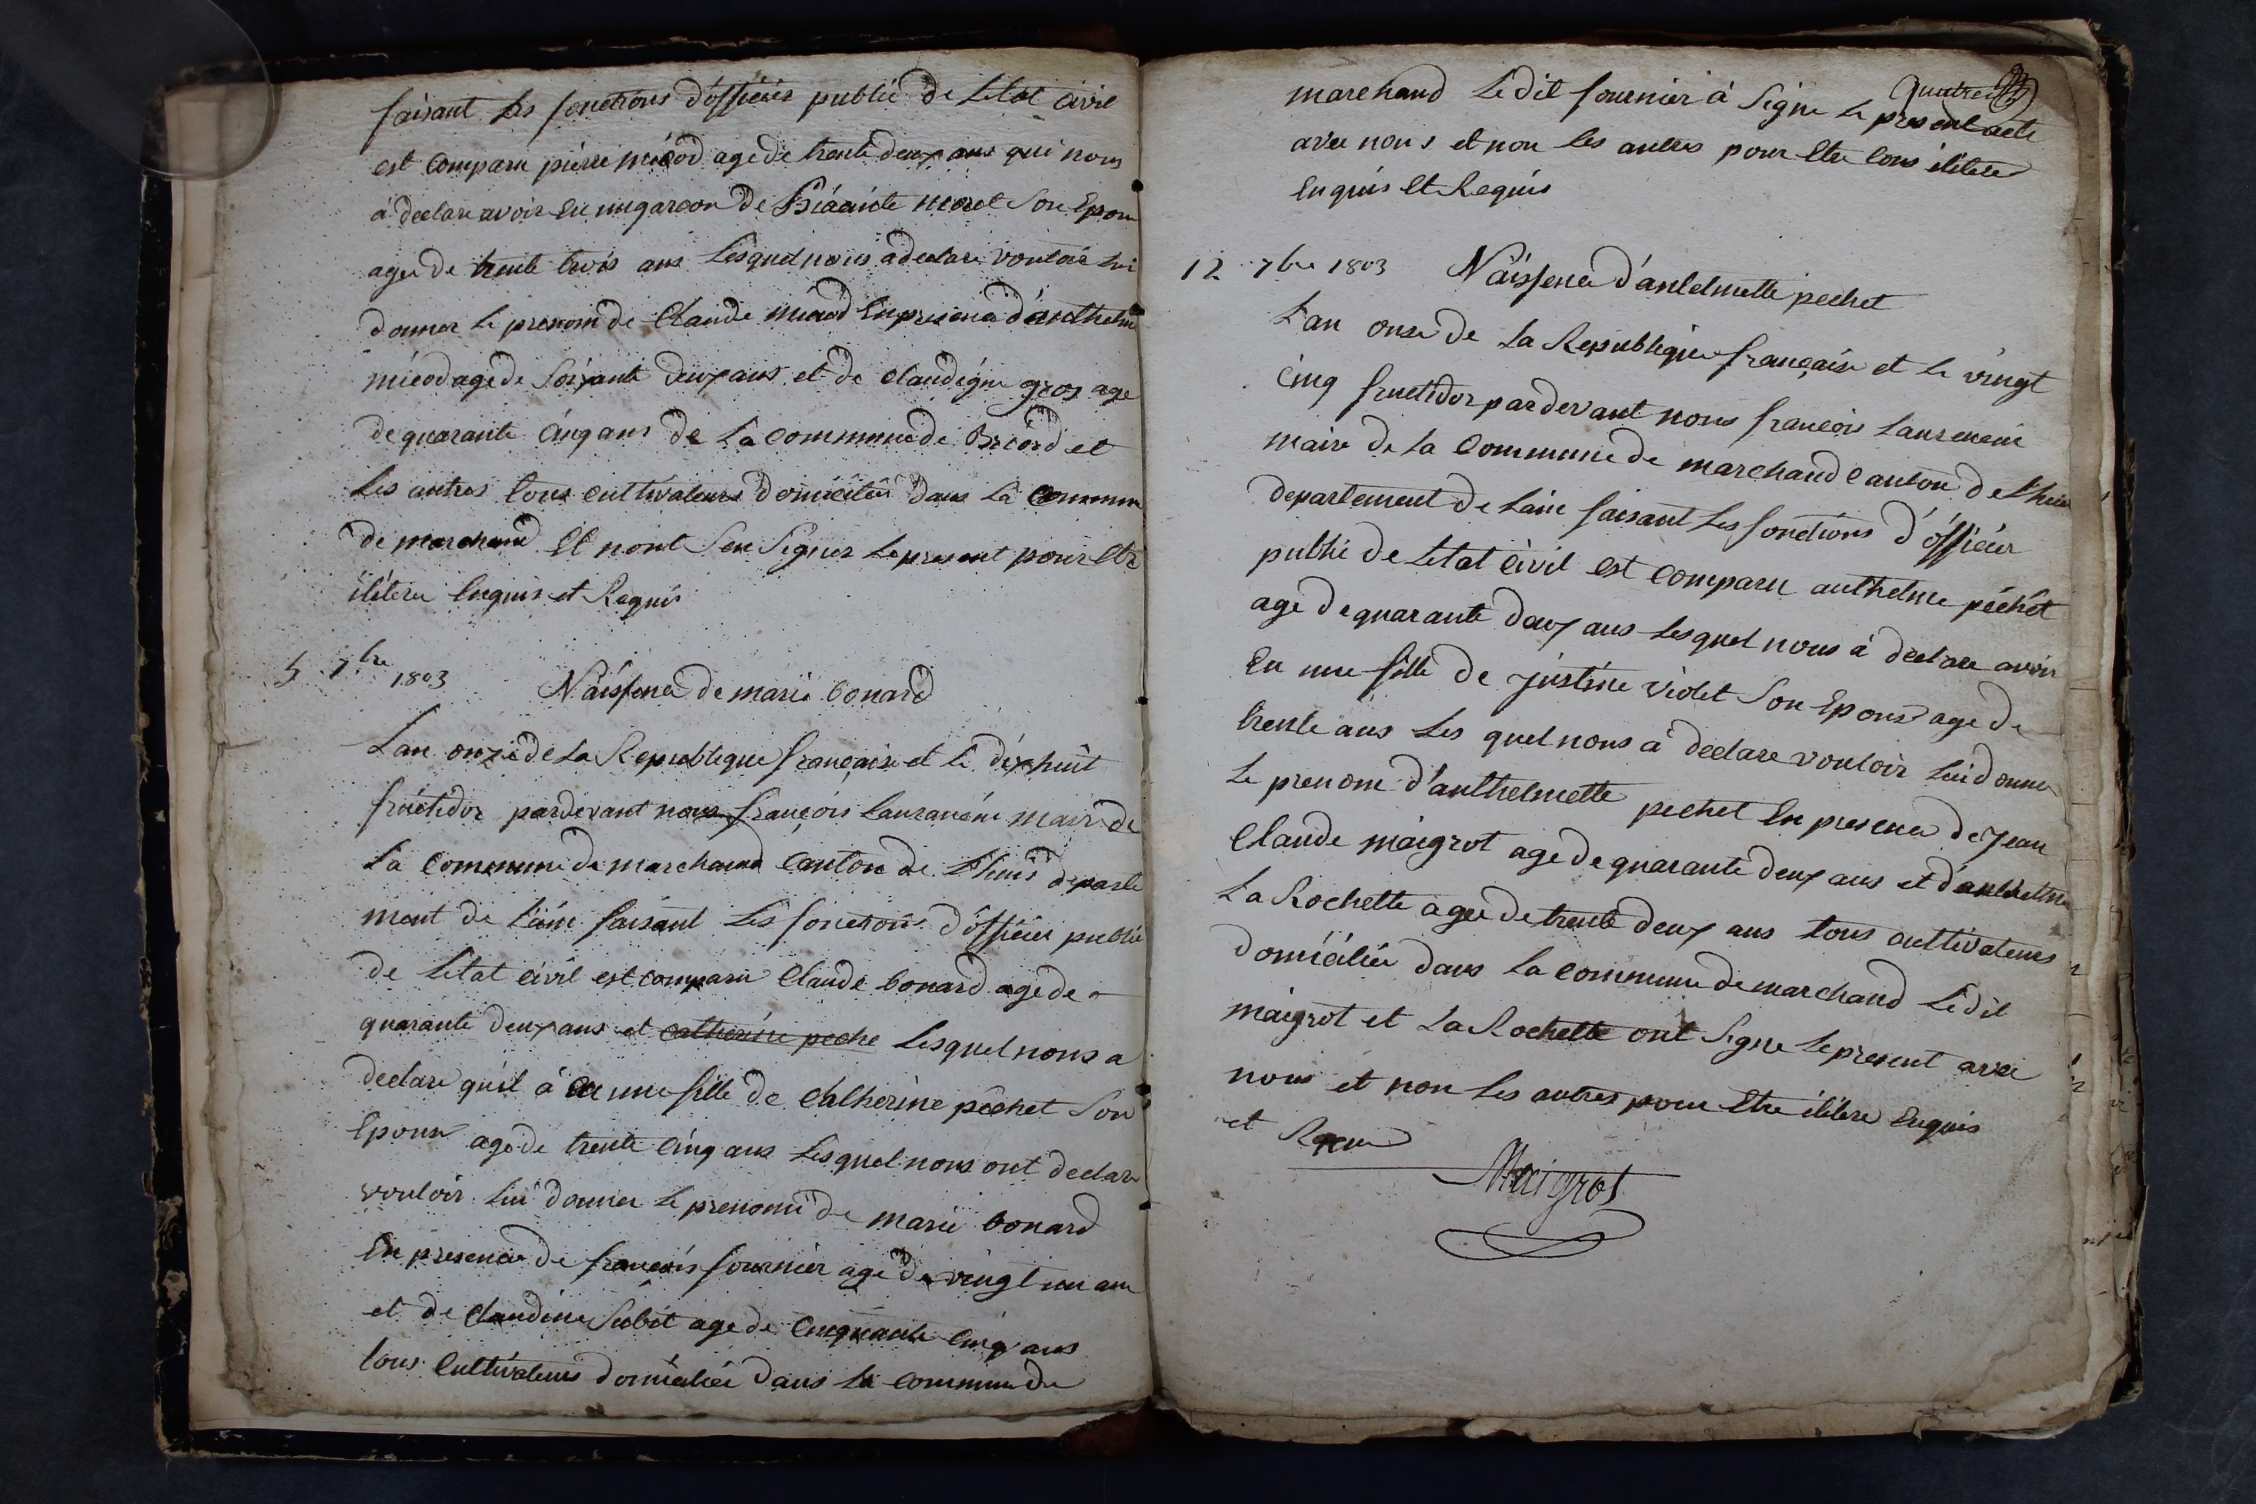 faisant les fonctions d'officier public de Letat civil
est comparu pierre micod age de trente deux ans qui nous
à declare avoir Eu un garcon de Biacinte moret Son Epouse
agee de trente trois ans Lesquel nous a declare vouloir lui
donner Le prenom de Claude micod En presence d'anthelme
micod age de Soixante deux ans et de claudigne gros age
de quarante cinq ans de La commune de Briord et
Les autres tous cultivateurs domicilies dans La commune
de marchand Et n'ont Seu Signer Le present pour Etre
ilitere Enquis et Requis
5 7bre 1803 Naissence de marie bonard
L'an onze de La Republique française et le dix huit
fructidor pardevant nous françois Laurencin maire de
La Commune de marchand Canton de Lhuis departe
ment de L'ain faisant Les fonctions d'officier public
de Letat civil est comparu Claude bonard age de
quarante deux ans et catherine peche Lesquel nous a
declare qu'il à Eu une fille de Catherine pechet Son
Epouse age de trente cinq ans Lesquel nous ont declare
vouloir Lui donner Le prenom de marie bonard
En presence de françois fournier age de vingt un ans
et de claudine Subit age de Cinquante cinq ans
tous Cultivateurs domicilies dans La commune de
quatre
marchand Ledit fournier à Signe Le present acte
avec nous et non les autres pour Etre tous ilitere
Enquis Et Requis
12 7bre 1803 Naissence d'anthelmette pechet
L'an onze de La Republique française et Le vingt
cinq fructidor pardevant nous françois Laurencin
maire de La Commune de marchand canton de Lhuis
departement de Lain faisant Les fonctions d'officier
public de Letat civil est comparu anthelme péchét
age de quarante deux ans Lesquel nous à declare avoir
Eu une fille de justine violet Son Epouse age de
trente ans Les quel nous à declare vouloir Lui donner
Le prenom d'anthelmette pechet En presence de Jean
Claude maigrot age de quarante deux ans et d'anthelme
La Rochette agee de trente deux ans tous cultivateurs
domicilies dans La commune de marchand Ledit
maigrot et La Rochette ont Signe Le present avec
nous et non Les autres pour Etre ilitere Enquis
et Requis
Maigrot